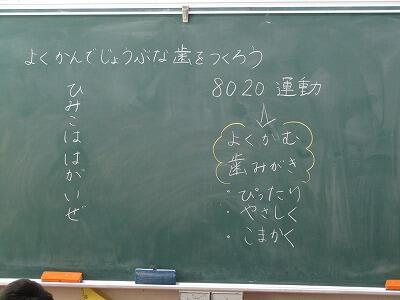 よくかんでじょうぶな歯をつくろう
ひみこはがいぜ
8020運動
よくかむ
歯みがき
・ぴったり
・やさしく
・こまかく